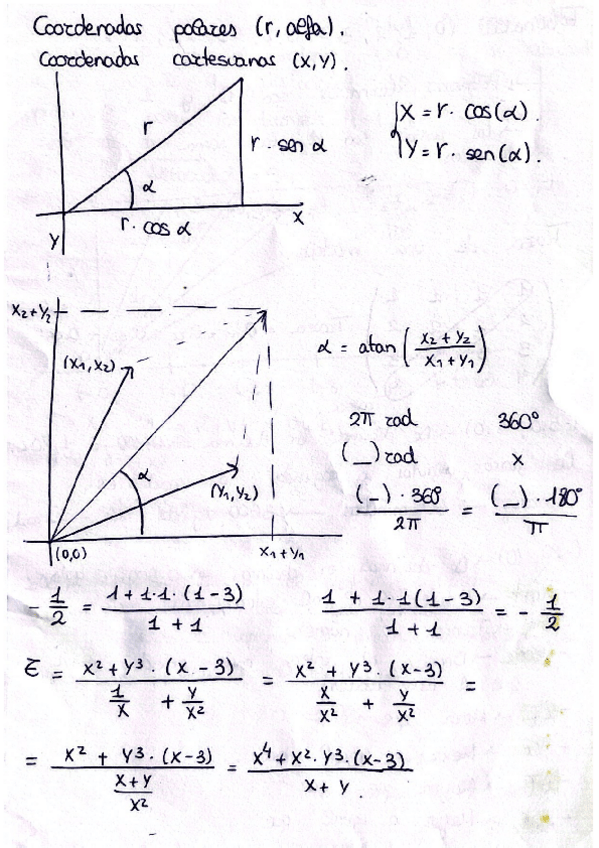 Coordenadas polares (r, alfa).
Coordenadas cartesianas (x,y).
r
r · sen α
α
r · cos α
X
Y
X = r · cos(α).
Y = r · sen(α).
X₂+Y₂
(X₁,X₂)
α
(Y₁,Y₂)
(0,0)
X₁+Y₁
α = atan (X₂ + Y₂ / X₁ + Y₁)
2π rad 360°
(_) rad x
(_) · 360° / 2π = (_) · 180° / π
- 1/2 = 1 + 1·1·(1-3) / 1 + 1
1 + 1·1(1-3) / 1 + 1 = - 1/2
= x² + y³ · (x - 3) / (1/x + y/x²) = x² + y³ · (x-3) / (x/x² + y/x²) =
= x² + y³ · (x-3) / ((x+y)/x²) = x⁴ + x² · y³ · (x-3) / x + y.